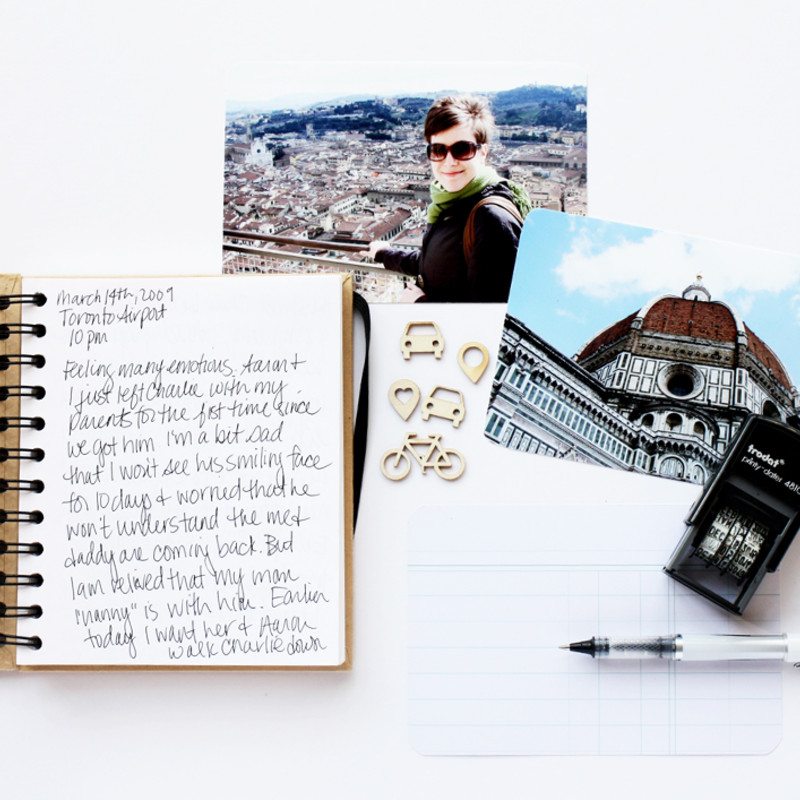 March 14th, 2009
Toronto Airport
10 pm
Feeling many emotions. Aaron &
I just left Charlie with my
Parents for the first time since
we got him I'm a bit sad
that I won't see his smiling face
for 10 days & worried that he
won't understand the me &
daddy are coming back. But
I am relieved that my mom
"nanny" is with him. Earlier
today I want her & Aaron
walk Charlie down
trodat
printy-dater 4810
DEC